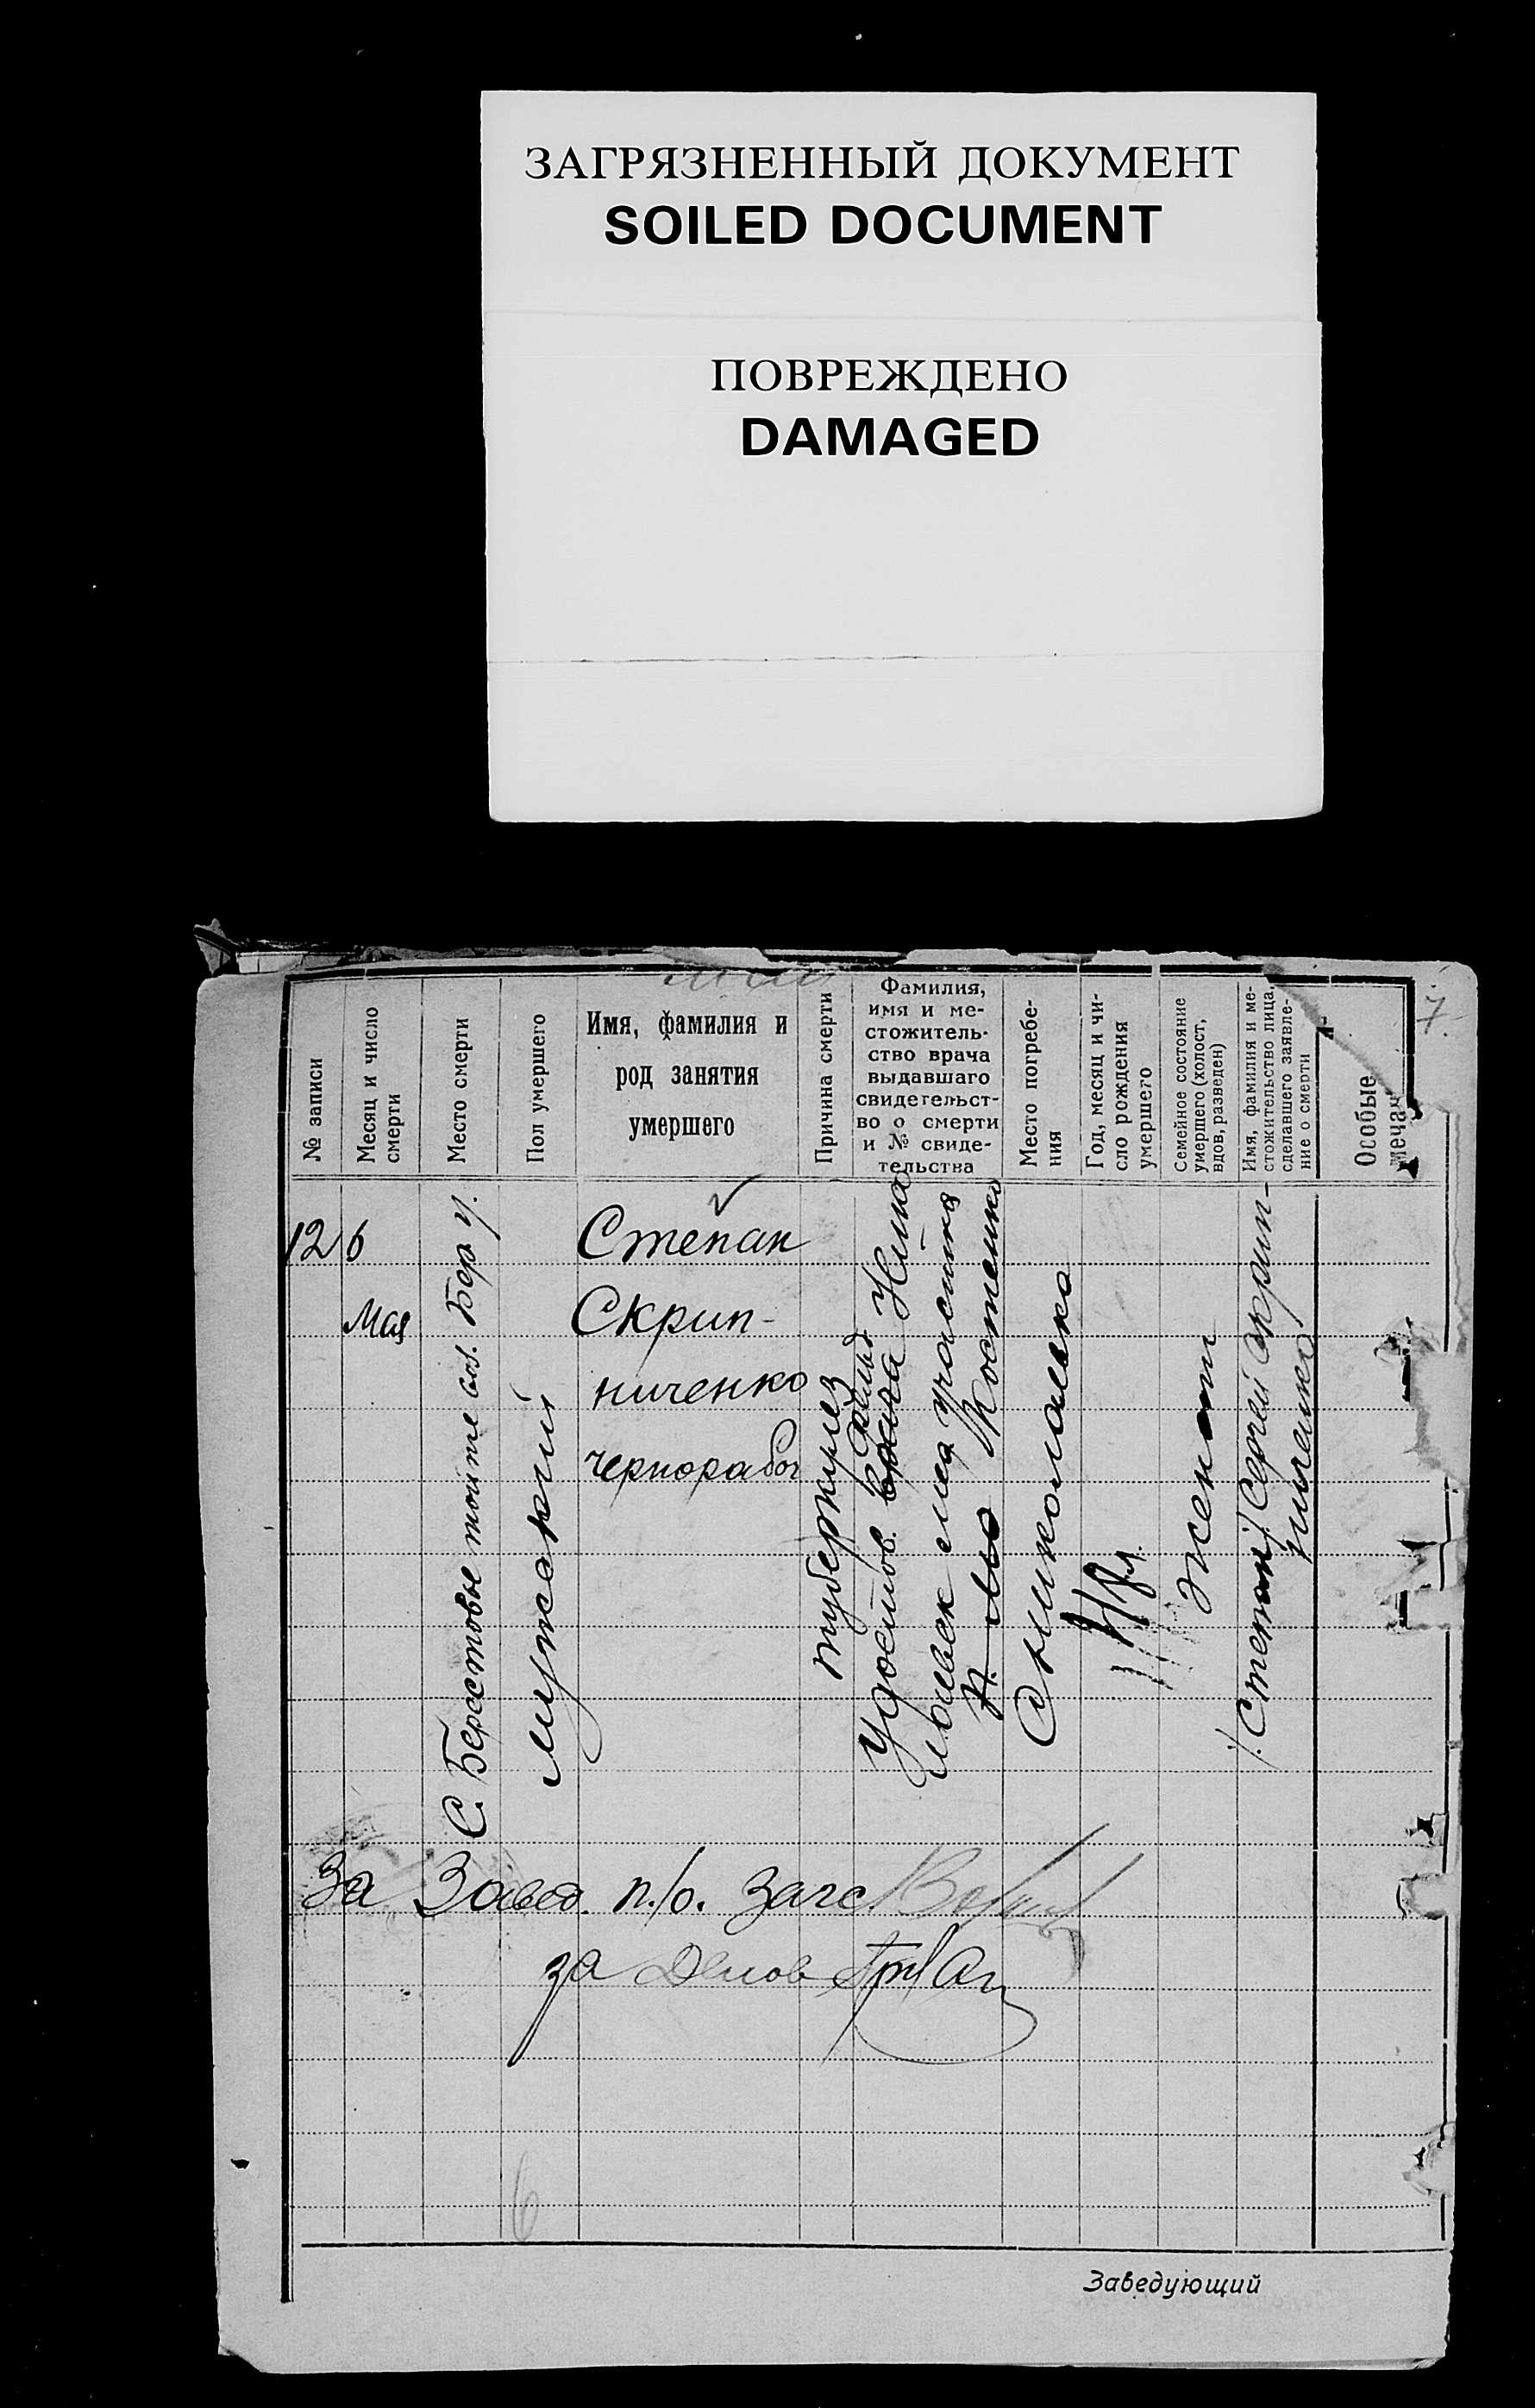 ЗАГРЯЗНЕННЫЙ ДОКУМЕНТ
SOILED DOCUMENT
ПОВРЕЖДЕНО
DAMAGED
7.
№ записи
Месяц и число
смерти
Место смерти
Пол умершего
Имя, фамилия и
род занятия
умершего
Причина смерти
Фамилия,
имя и ме-
стожитель-
ство врача
выдавшаго
свидетельст-
во о смерти
и № свиде-
тельства
Место погребе-
ния
Год, месяц и чи-
сло рождения
умершего
Семейное состояние
умершего (холост,
вдов, разведен)
Имя, фамилия и ме-
стожительство лица,
сделавшего заявле-
ние о смерти
Особые
мечан
12
6
Мая
С. Берестовые
Бер. у.
мужской
Степан
Скрип-
ниченко
чернораб
туберкулез
Удостов. врача
участка
Костенко
женат
/. Степан / Сергей Скрип-
ниченко
За Завед. п./о. Загс
за Делов
6
Заведующий